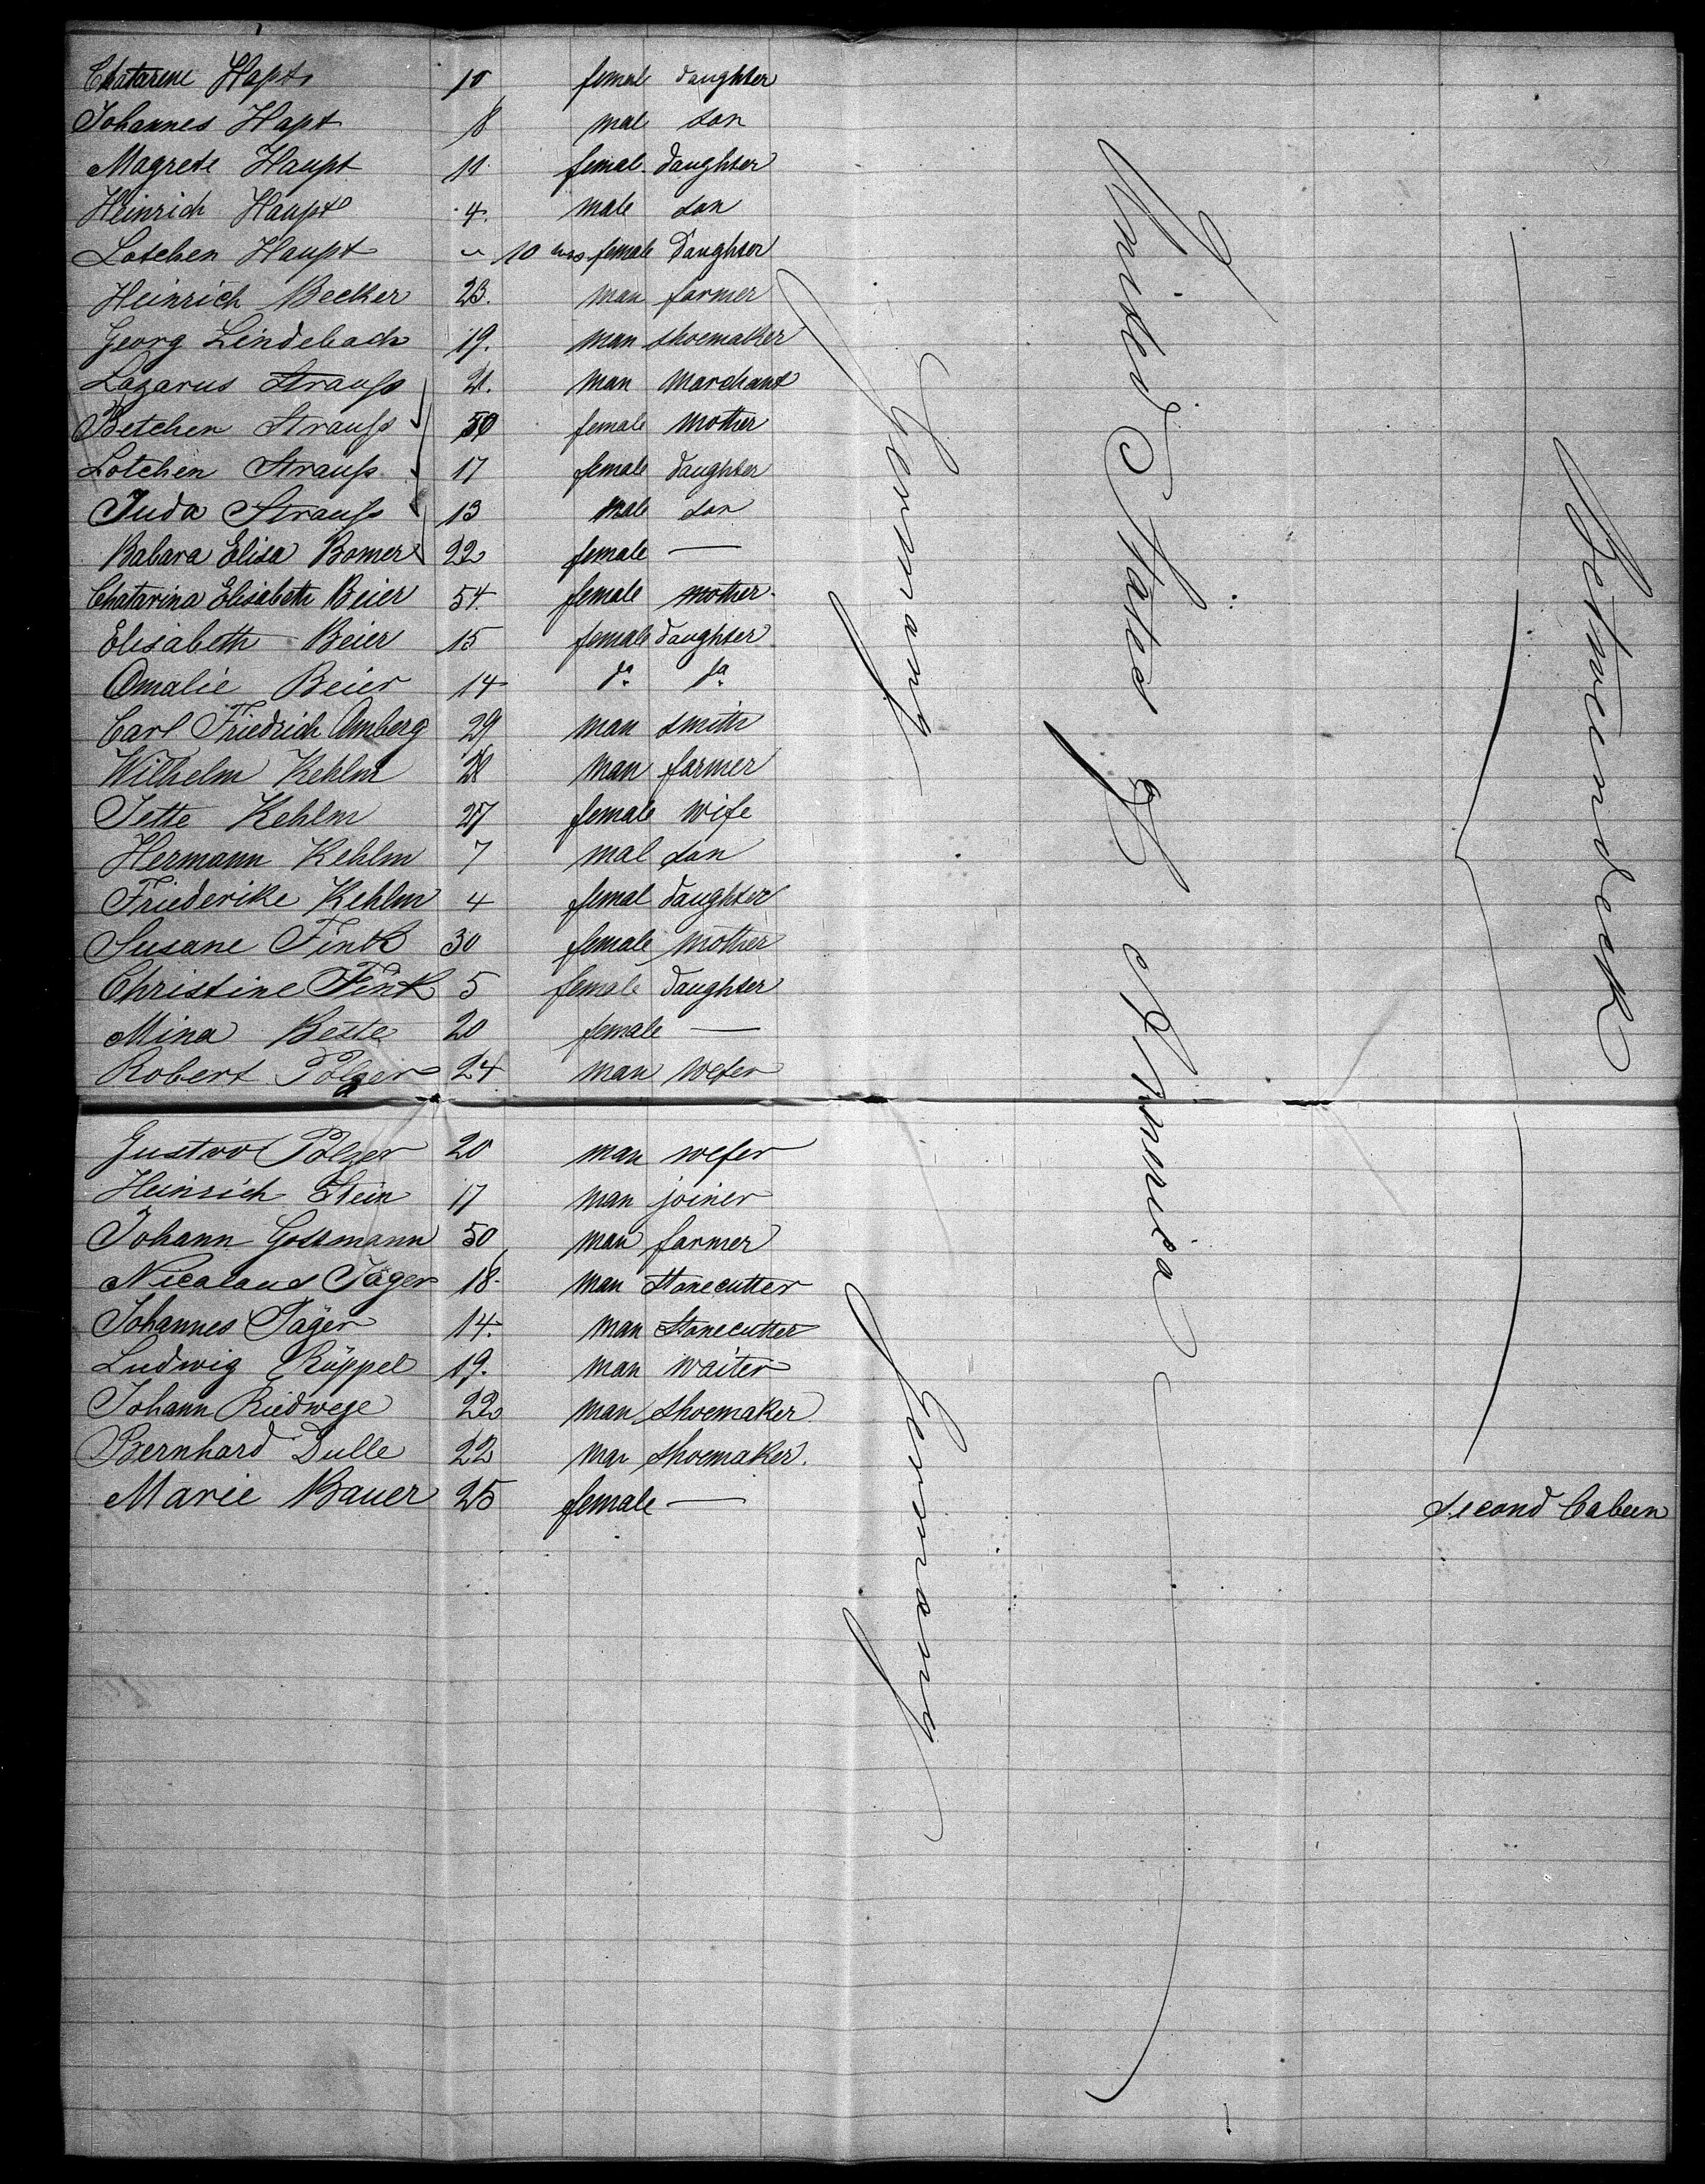 Chatarine Hapt 10 female daughter
Johannes Hapt 8 mal son
Magrete Haupt 11 femal daughter
Heinrich Haupt 4. male son
Lotchen Haupt " 10 mos female Daughter
Heinrich Becker 23. man farmer
Georg Lindebach 19. man shoemaker
Lazarus Strauß 21. man Marchant
Betchen Strauß 50 female Mother
Lotchen Strauß 17 female daughter
Juda Strauß 13 male son
Babara Elisa Bomer 22 female —
Chatarina Elisabeth Beier 54. female mother.
Elisabeth Beier 15 female daughter
Amalie Beier 14 do do
Carl Friedrich Amberg 29 man smith
Wilhelm Kehlm 28 man farmer
Jette Kehlm 27 female wife
Hermann Kehlm 7 mal son
Friederike Kehlm 4 femal daughter
Susane Fink 30 female mother
Christine Fink 5 female daughter
Mina Beste 20 female —
Robert Polzer 24 man wefer
Gustav Polzer 20 man wefer
Heinrich Stein 17 man joiner
Johann Gossmann 50 man farmer
Nicalaus Jäger 18. man Stonecutter
Johannes Jäger 14. man Stonecutter
Ludwig Rüppel 19. man waiter
Johann Riedwege 22 man shoemaker
Bernhard Dulle 22 man shoemaker.
Marie Bauer 25 female — second Cabeen
Germany
Germany
United States of America
Betweendeck